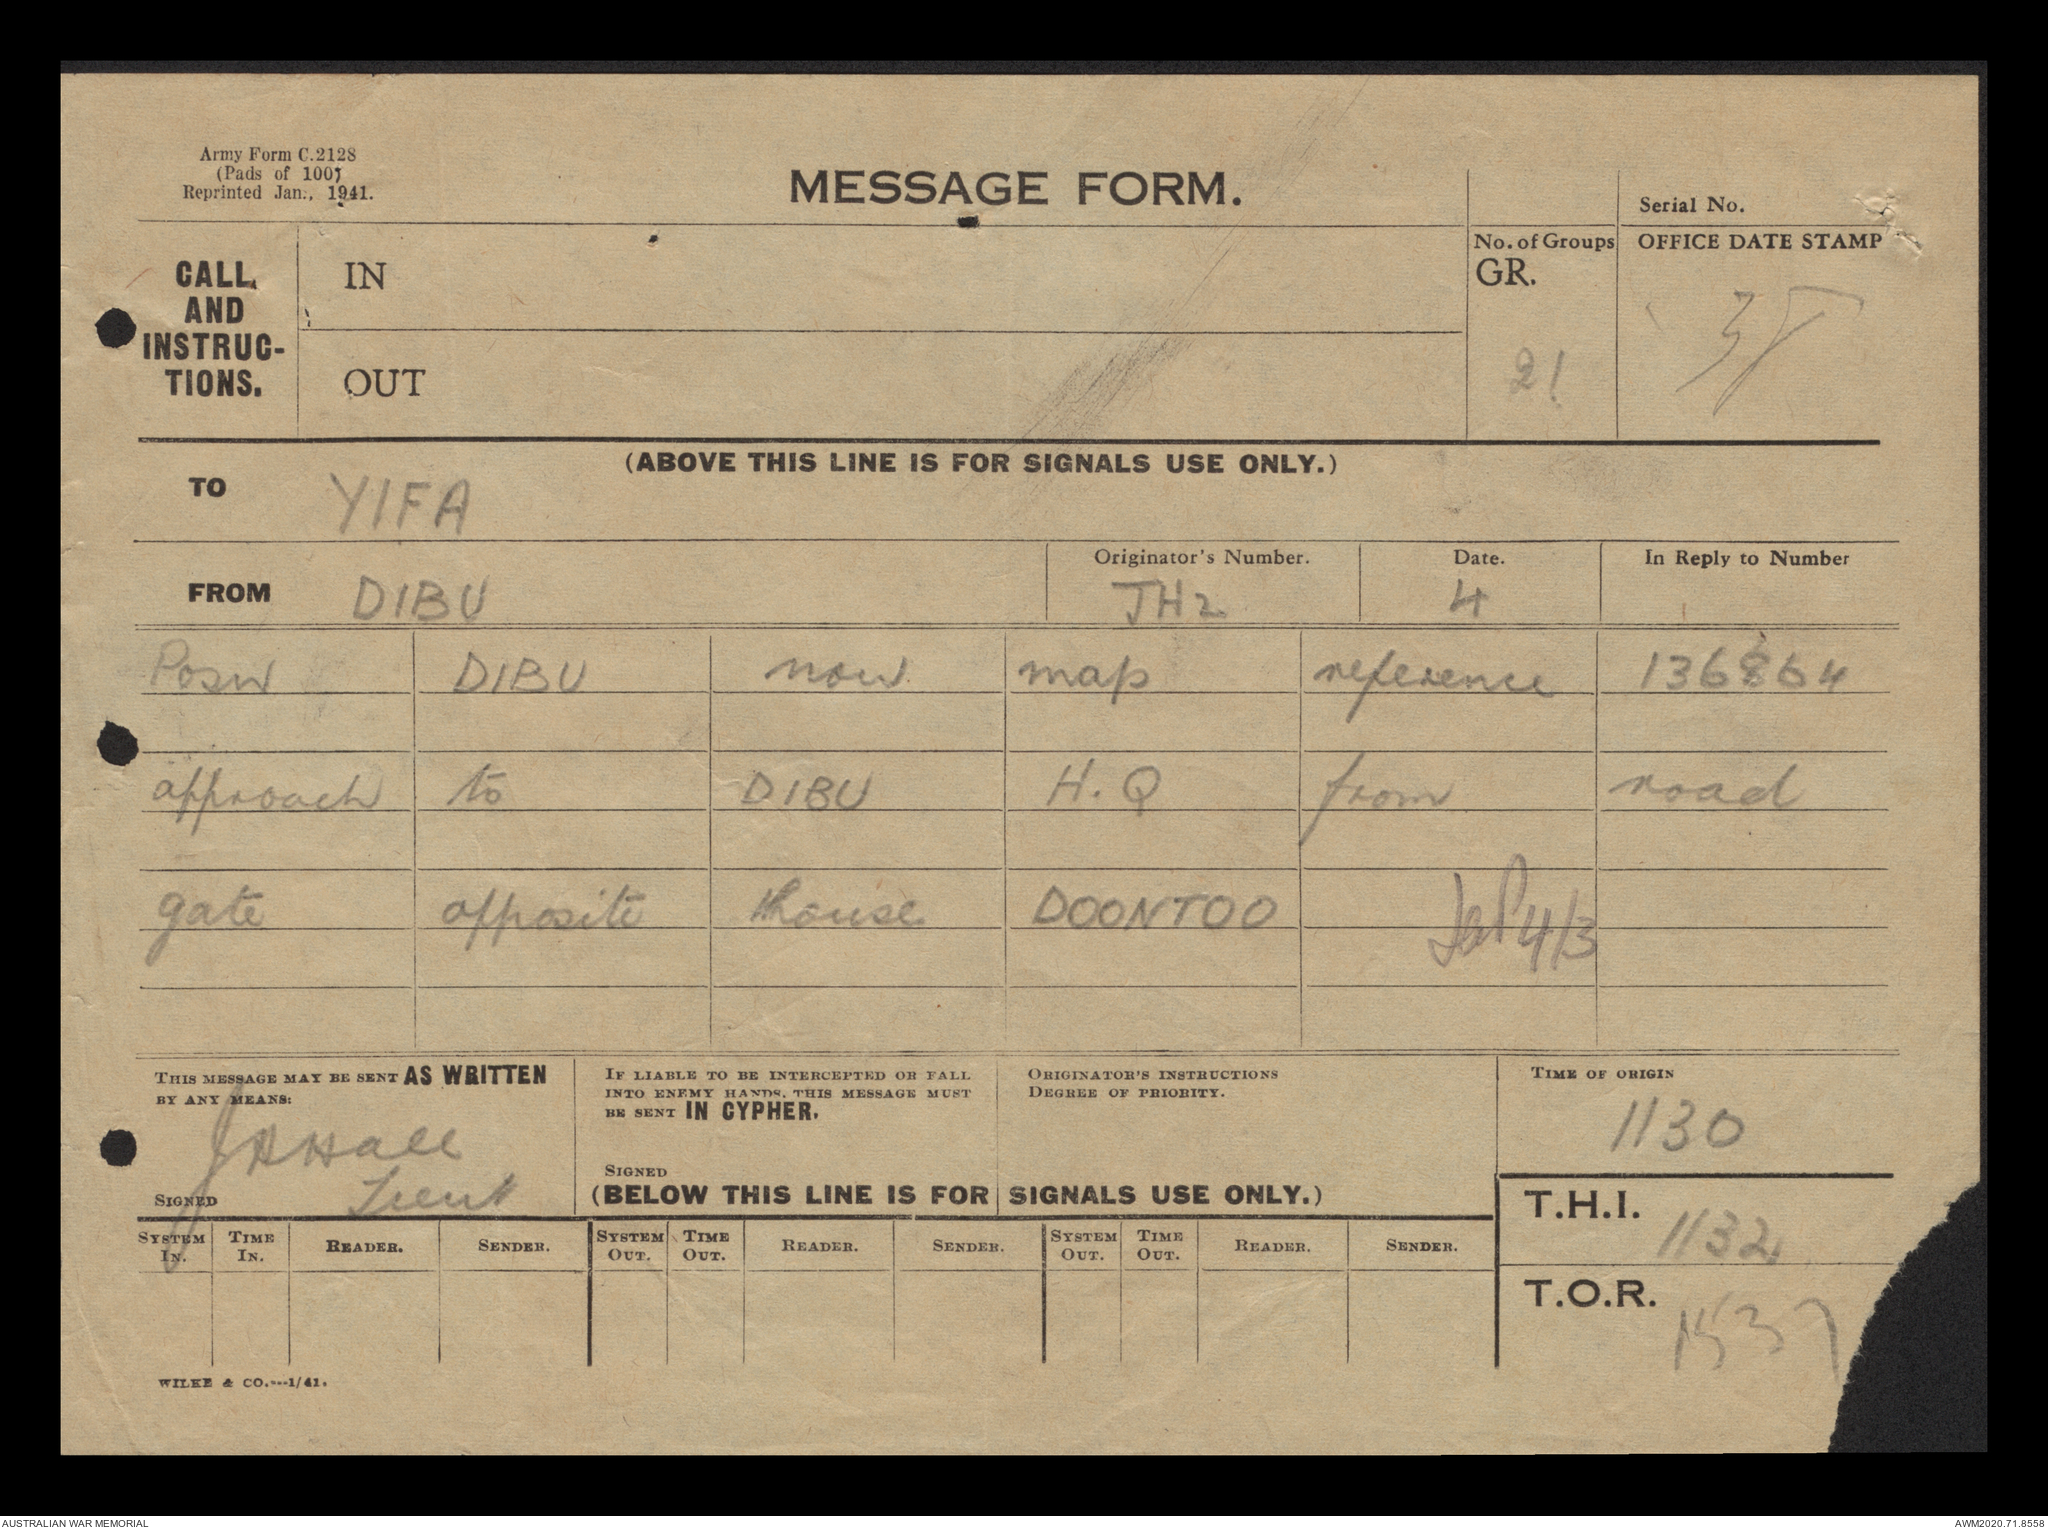 Army Form C.2128
(Pads of 100)
Reprinted Jan., 1941.
MESSAGE FORM.
Serial No.
CALL
AND
INSTRUC-
TIONS.
IN
OUT
No. of Groups
GR.
21
OFFICE DATE STAMP
(ABOVE THIS LINE IS FOR SIGNALS USE ONLY.)
TO YIFA
FROM DIBU
Originator's Number.
JH2
Date.
4
In Reply to Number
Posn DIBU now map reference 136864
approach to DIBU H.Q from road
gate opposite house DOONTOO
4/3
THIS MESSAGE MAY BE SENT AS WRITTEN
BY ANY MEANS:
JHHall
Lieut
SIGNED
IF LIABLE TO BE INTERCEPTED OR FALL
INTO ENEMY HANDS, THIS MESSAGE MUST
BE SENT IN CYPHER.
SIGNED
ORIGINATOR'S INSTRUCTIONS
DEGREE OF PRIORITY.
TIME OF ORIGIN
1130
(BELOW THIS LINE IS FOR SIGNALS USE ONLY.)
T.H.I.
1132
T.O.R.
SYSTEM IN. TIME IN. READER. SENDER. SYSTEM OUT. TIME OUT. READER. SENDER. SYSTEM OUT. TIME OUT. READER. SENDER.
WILKE & CO.---1/41.
AUSTRALIAN WAR MEMORIAL
AWM2020.71.8558